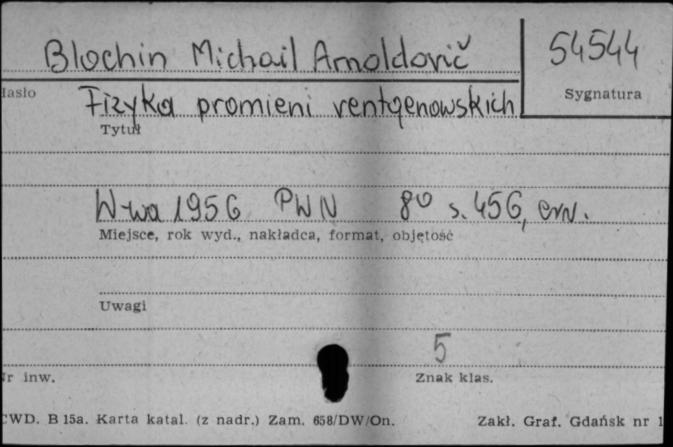 Blochin Michail Arnoldovič
54544
Hasło
Sygnatura
Fizyka promieni rentgenowskich
Tytuł
W-wa 1956 PWN 8° s. 456, err.
Miejsce, rok wyd., nakładca, format, objętość
Uwagi
5
Nr inw.
Znak klas.
CWD. B 15a. Karta katal. (z nadr.) Zam. 658/DW/On.
Zakł. Graf. Gdańsk nr 1